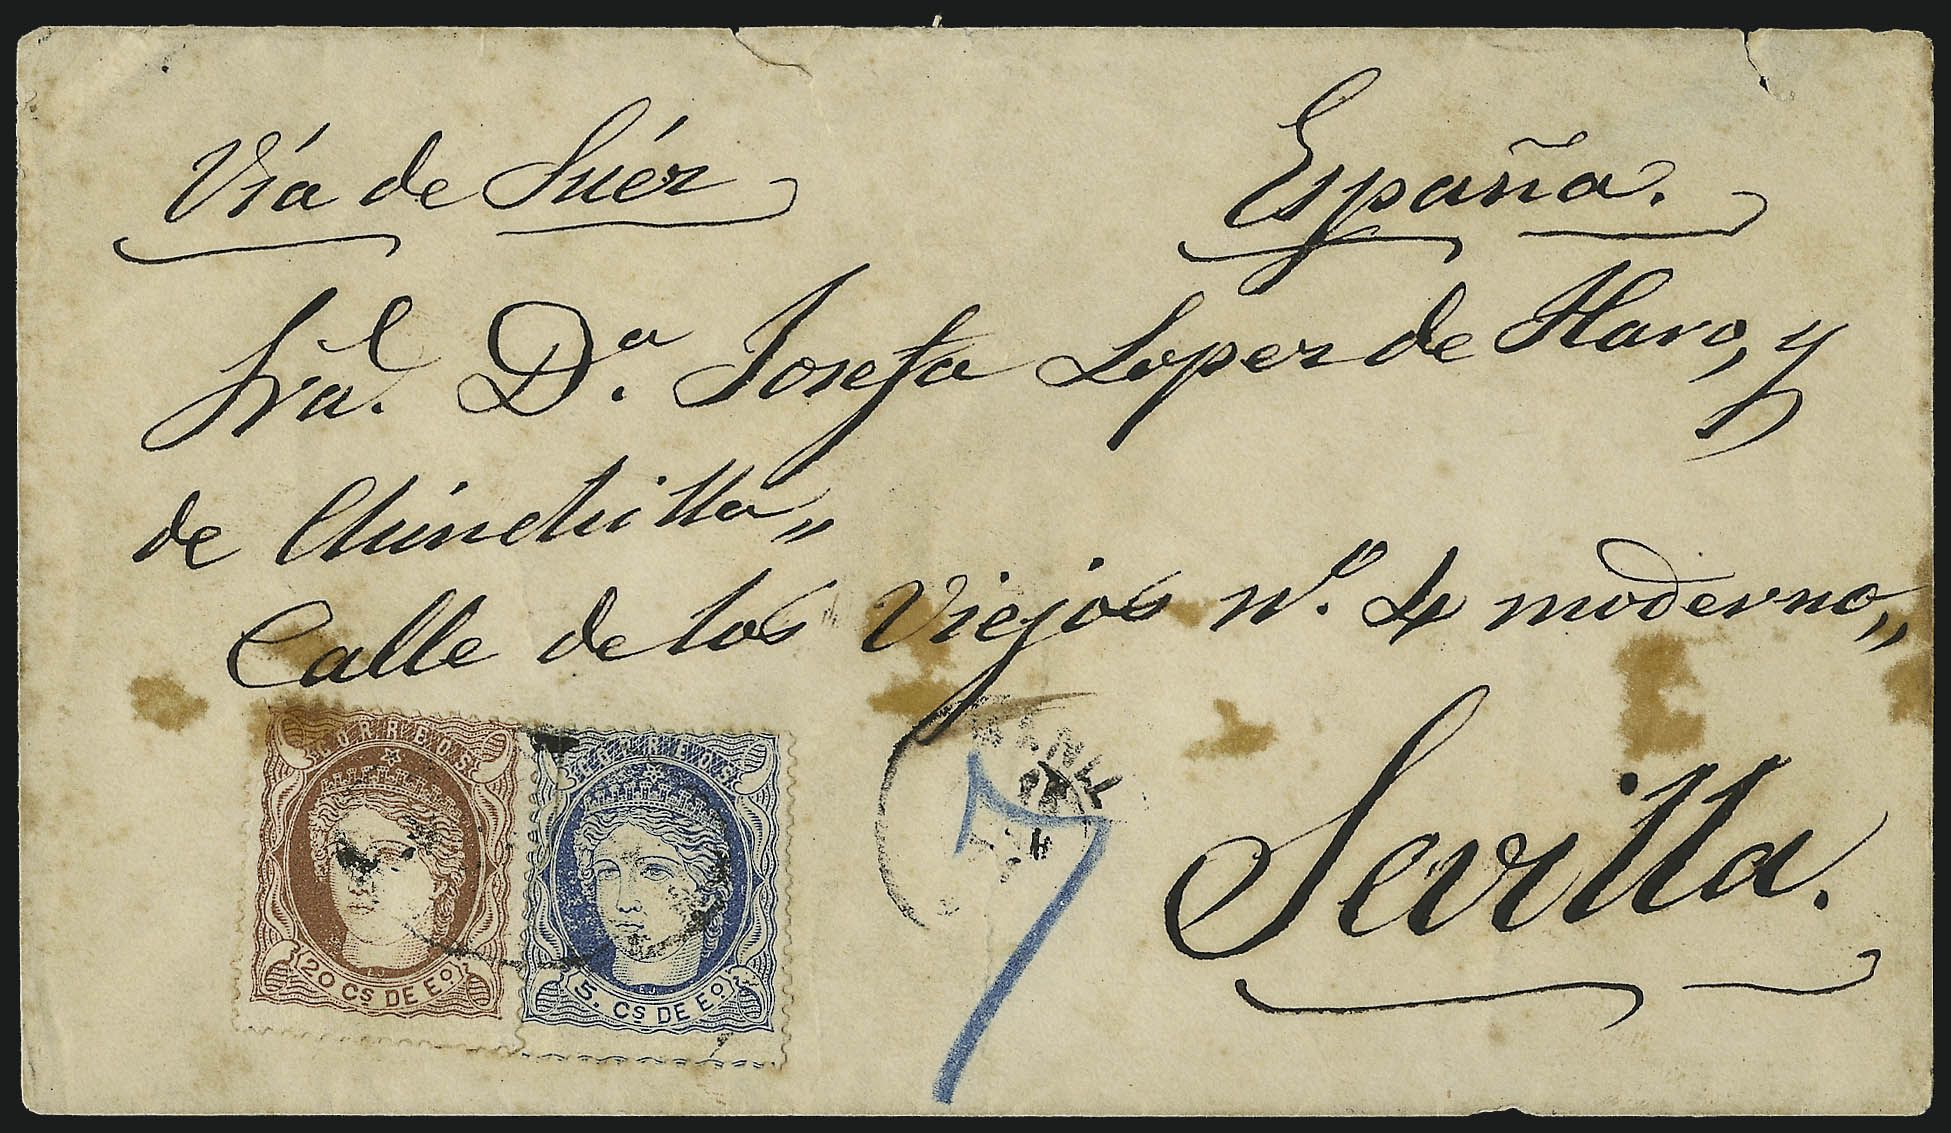 Vía de Suéz España.
Sra. Dª. Josefa Lopez de Haro, y
de Chinchilla„
Calle de los Viejos nº. 4 moderno„
Sevilla.
7
CORREOS
20 Cs DE Eo
CORREOS
5. Cs DE Eo